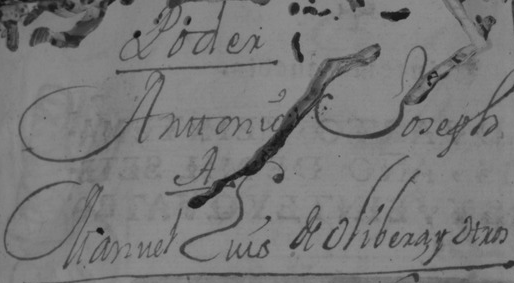 Poder
Anttonio Joseph
A
Manuel Luis de olibera, y otros